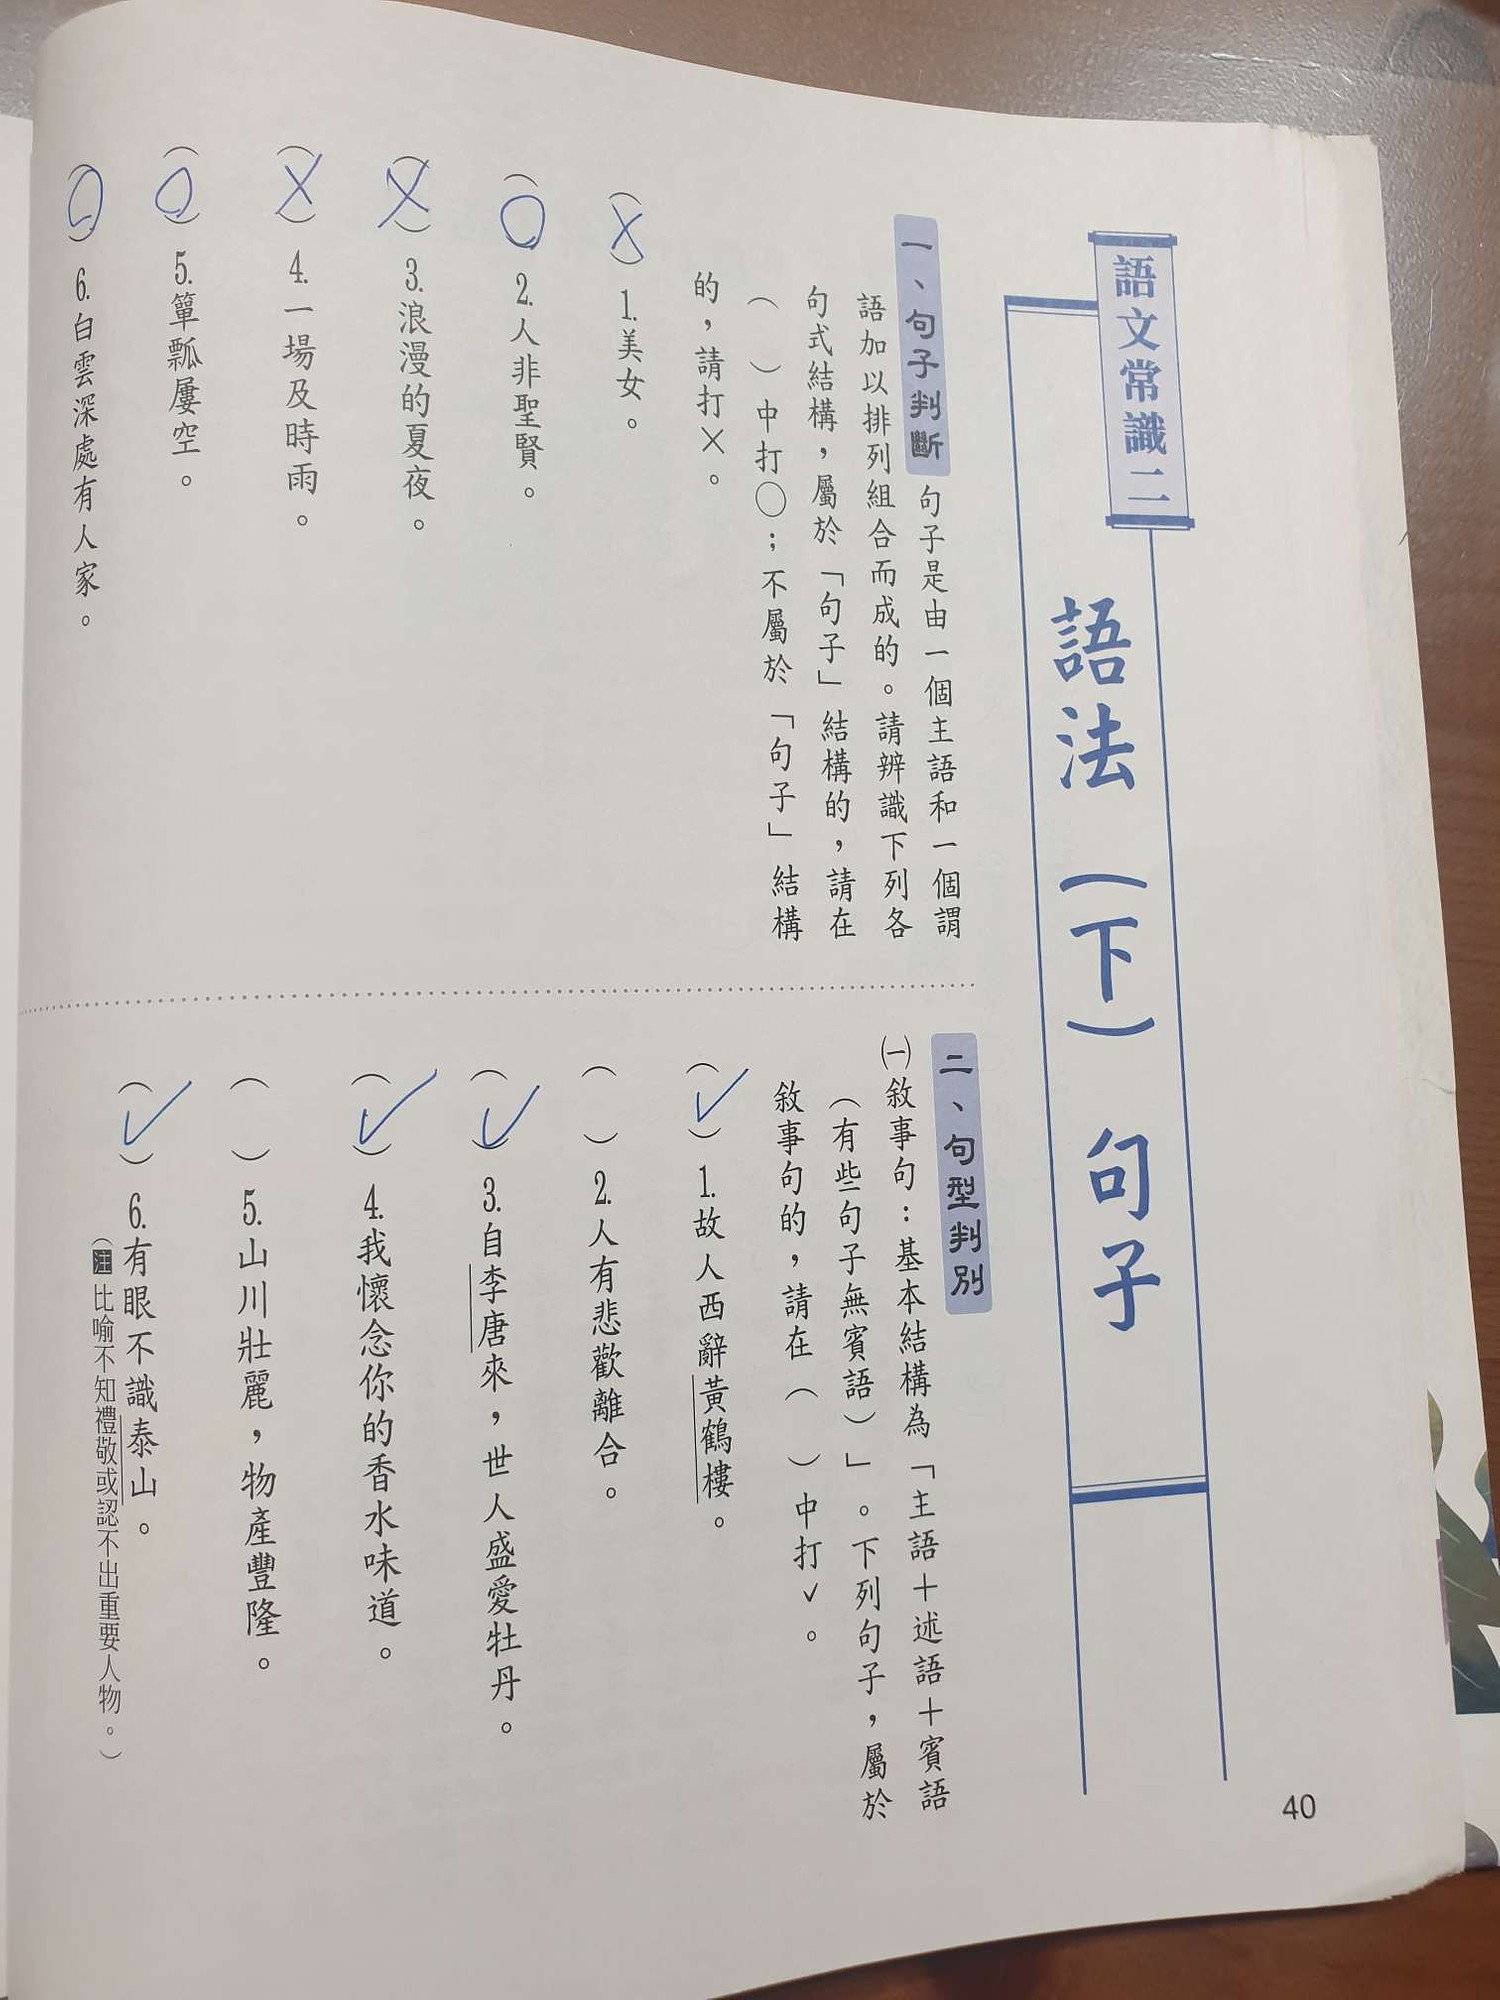 語文常識二
語法（下）句子
一、句子判斷 句子是由一個主語和一個謂
語加以排列組合而成的。請辨識下列各
句式結構，屬於「句子」結構的，請在
（ ）中打○；不屬於「句子」結構
的，請打×。
（X）1.美女。
（O）2.人非聖賢。
（X）3.浪漫的夏夜。
（X）4.一場及時雨。
（O）5.簞瓢屢空。
（O）6.白雲深處有人家。
二、句型判別
㈠敘事句：基本結構為「主語＋述語＋賓語
（有些句子無賓語）」。下列句子，屬於
敘事句的，請在（ ）中打✓。
（✓）1.故人西辭黃鶴樓。
（ ）2.人有悲歡離合。
（✓）3.自李唐來，世人盛愛牡丹。
（✓）4.我懷念你的香水味道。
（ ）5.山川壯麗，物產豐隆。
（✓）6.有眼不識泰山。
（注比喻不知禮敬或認不出重要人物。）
40